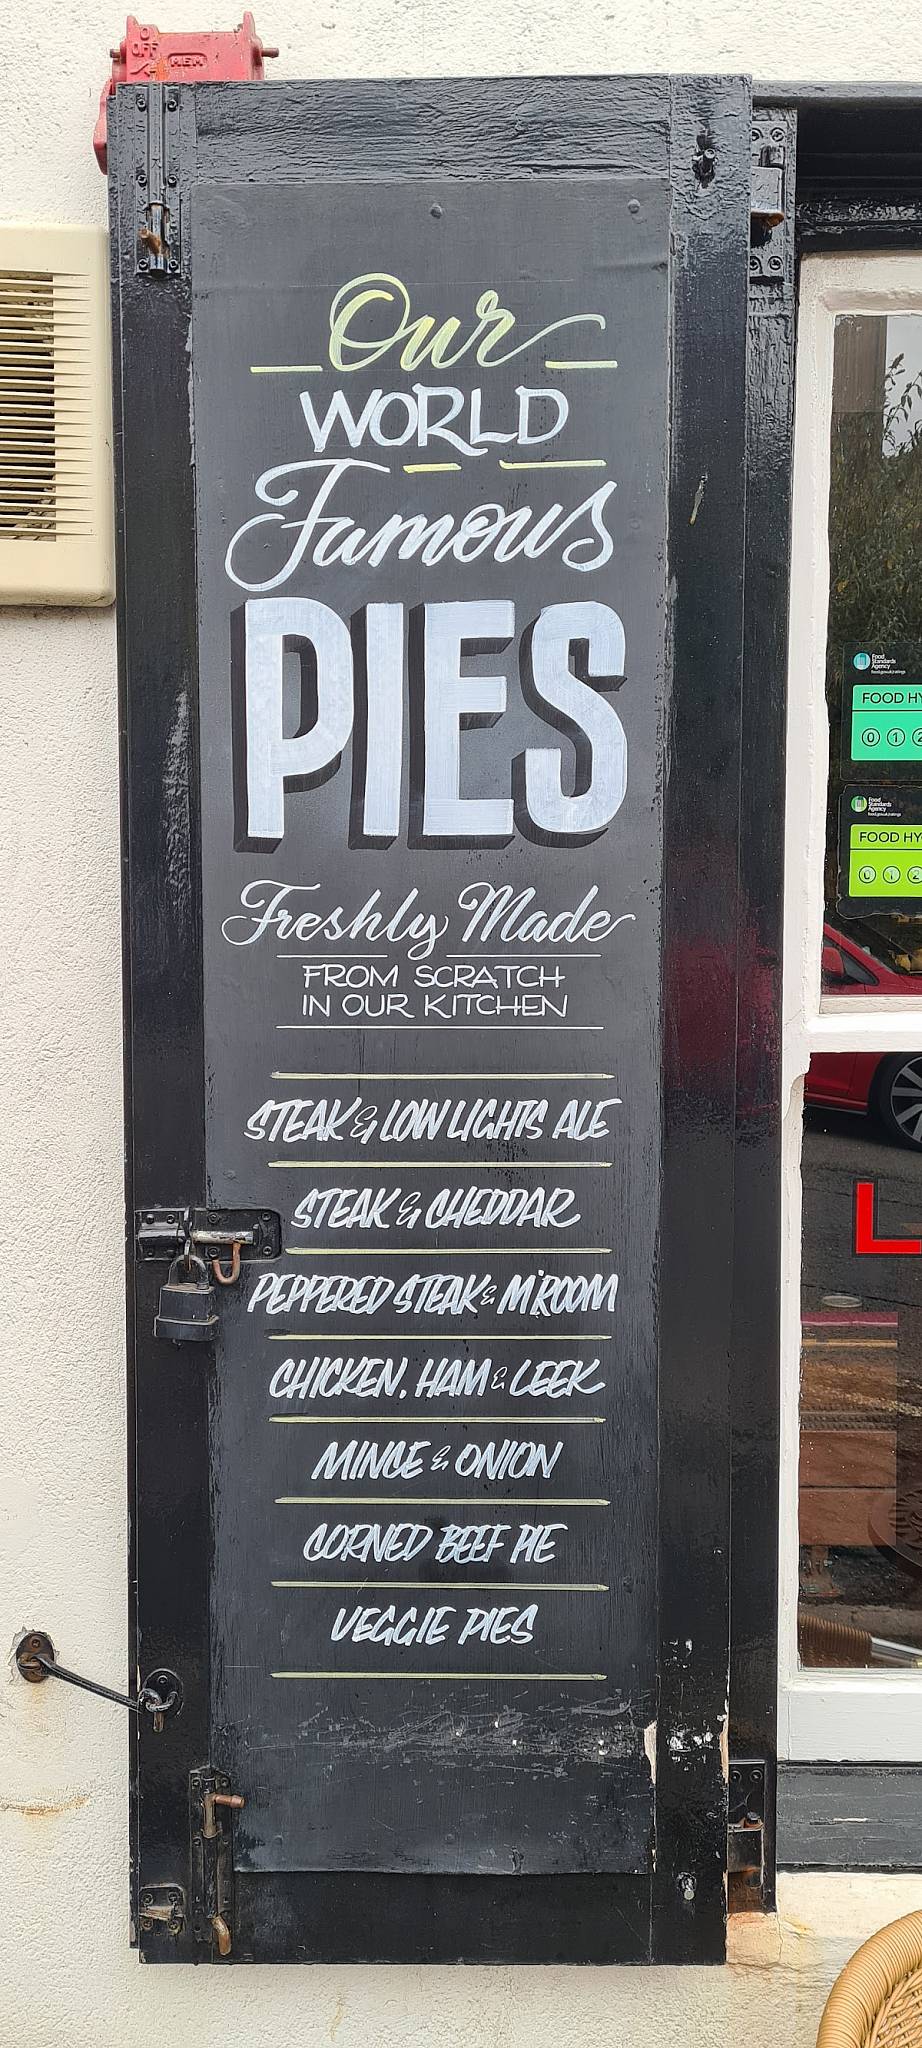 O
OFF
MEM
Our
WORLD
Famous
PIES
Freshly Made
FROM SCRATCH
IN OUR KITCHEN
STEAK & LOWLIGHTS ALE
STEAK & CHEDDAR
PEPPERED STEAK & M'ROOM
CHICKEN, HAM & LEEK
MINCE & ONION
CORNED BEEF PIE
VEGGIE PIES
Food
Standards
Agency
food.gov.uk/ratings
FOOD HY
0 1 2
Food
Standards
Agency
food.gov.uk/ratings
FOOD HY
0 1 2
L